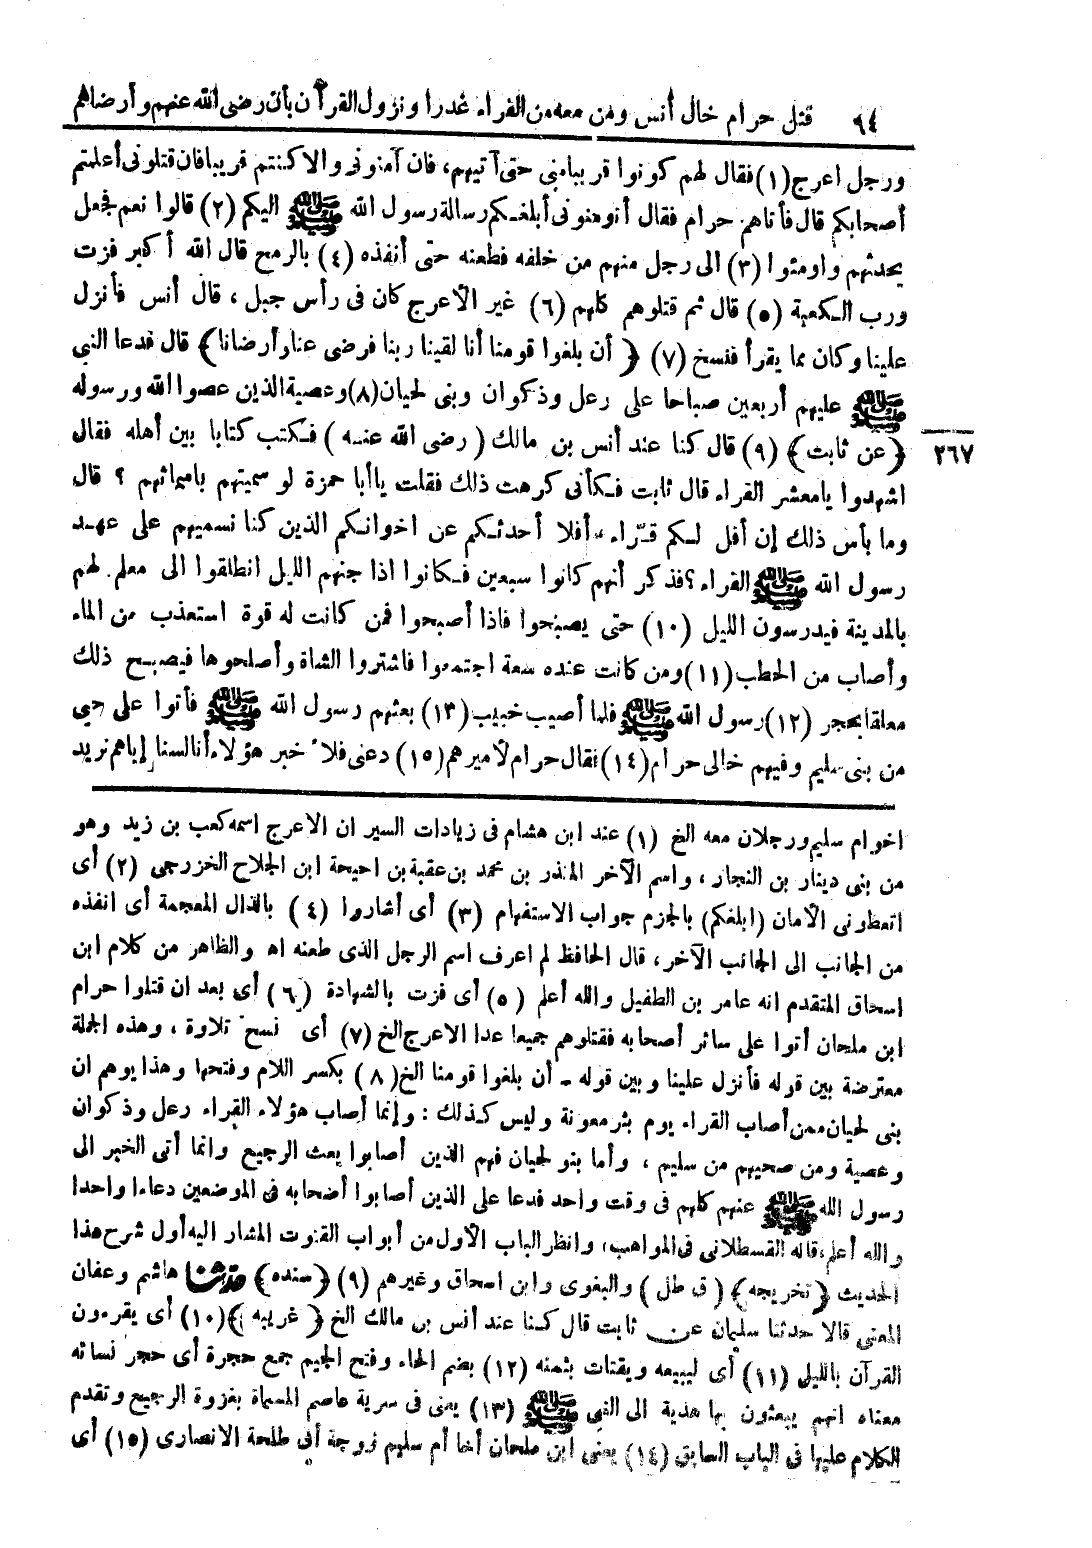 ٦٤ قتل حرام خال أنس ومن معه من القراء غدرا ونزول القرآن بأن رضى الله عنهم وأرضاهم
ورجل اعرج (١) فقال لهم كونوا قريبا منى حتى آتيهم، فان آمنونى والا كنتم قريبا فان قتلونى أعلمتم
أصحابكم قال فأتاهم حرام فقال أتومنونى أبلغكم رسالة رسول الله ﷺ اليكم (٢) قالوا نعم فجعل
يحدثهم واومئوا (٣) الى رجل منهم من خلفه فطعنه حتى أنفذه (٤) بالرمح قال الله أكبر فزت
ورب الكعبة (٥) قال ثم قتلوهم كلهم (٦) غير الأعرج كان فى رأس جبل، قال أنس فأنزل
علينا وكان مما يقرأ فنسخ (٧) ﴿ أن بلغوا قومنا أنا لقينا ربنا فرضى عنا وأرضانا﴾ قال فدعا النبى
ﷺ عليهم أربعين صباحا على رعل وذكوان وبنى لحيان (٨) وعصية الذين عصوا الله ورسوله
٢٦٧ ﴿عن ثابت﴾ (٩) قال كنا عند أنس بن مالك (رضى الله عنه) فكتب كتابا بين أهله فقال
اشهدوا يا معشر القراء قال ثابت فكأنى كرهت ذلك فقلت يا أبا حمزة لو سميتهم باسمائهم ؟ قال
وما بأس ذلك إن أقل لكم قرّاء، أفلا أحدثكم عن اخوانكم الذين كنا نسميهم على عهد
رسول الله ﷺ القراء؟ فذكر أنهم كانوا سبعين فكانوا اذا جنهم الليل انطلقوا الى معلم لهم
بالمدينة فيدرسون الليل (١٠) حتى يصبحوا فاذا أصبحوا فمن كانت له قوة استعذب من الماء
وأصاب من الحطب (١١) ومن كانت عنده سعة اجتمعوا فاشتروا الشاة وأصلحوها فيصبح ذلك
معلقا بحجر (١٢) رسول الله ﷺ فلما أصيب خبيب (١٣) بعثهم رسول الله ﷺ فأتوا على حى
من بنى سليم وفيهم خالى حرام (١٤) فقال حرام لأميرهم (١٥) دعنى فلأخبر هؤلاء أنا لسنا إياهم نريد
اخوام سليم ورجلان معه الخ (١) عند ابن هشام فى زيادات السير ان الاعرج اسمه كعب بن زيد وهو
من بنى دينار بن النجار، واسم الآخر المنذر بن محمد بن عقبة بن احيحة ابن الجلاح الخزرجى (٢) أى
اتعطونى الأمان (ابلغكم) بالجزم جواب الاستفهام (٣) أى أشاروا (٤) بالذال المعجمة أى انفذه
من الجانب الى الجانب الآخر، قال الحافظ لم اعرف اسم الرجل الذى طعنه اه والظاهر من كلام ابن
اسحاق المتقدم انه عامر بن الطفيل والله أعلم (٥) أى فزت بالشهادة (٦) أى بعد ان قتلوا حرام
ابن ملحان أتوا على سائر أصحابه فقتلوهم جميعا عدا الاعرج الخ (٧) أى نسخ تلاوة، وهذه الجملة
معترضة بين قوله فأنزل علينا وبين قوله - أن بلغوا قومنا الخ (٨) بكسر اللام وفتحها وهذا يوهم ان
بنى لحيان ممن أصاب القراء يوم بئر معونة وليس كذلك: وإنما أصاب هؤلاء القراء رعل وذكوان
وعصية ومن صحبهم من سليم، وأما بنو لحيان فهم الذين أصابوا بعث الرجيع وانما أتى الخبر الى
رسول الله ﷺ عنهم كلهم فى وقت واحد فدعا على الذين أصابوا أصحابه فى الموضعين دعاءا واحدا
والله أعلم، قاله القسطلانى فى المواهب، وانظر الباب الأول من أبواب القنوت المشار اليه أول شرح هذا
الحديث ﴿تخريجه﴾ (ق طل) والبغوى وابن اسحاق وغيرهم (٩) ﴿سنده﴾ حدثنا هاشم وعفان
المعنى قالا حدثنا سليمان عن ثابت قال كنا عند أنس بن مالك الخ ﴿غريبه﴾ (١٠) أى يقرءون
القرآن بالليل (١١) أى ليبيعه ويقتات بثمنه (١٢) بضم الحاء وفتح الجيم جمع حجرة أى حجر نسائه
معناه انهم يبعثون بها هدية الى النبى ﷺ (١٣) يعنى فى سرية عاصم المسماة بغزوة الرجيع وتقدم
الكلام عليها فى الباب السابق (١٤) يعنى ابن ملحان أخا أم سليم زوجة أبى طلحة الانصارى (١٥) أى